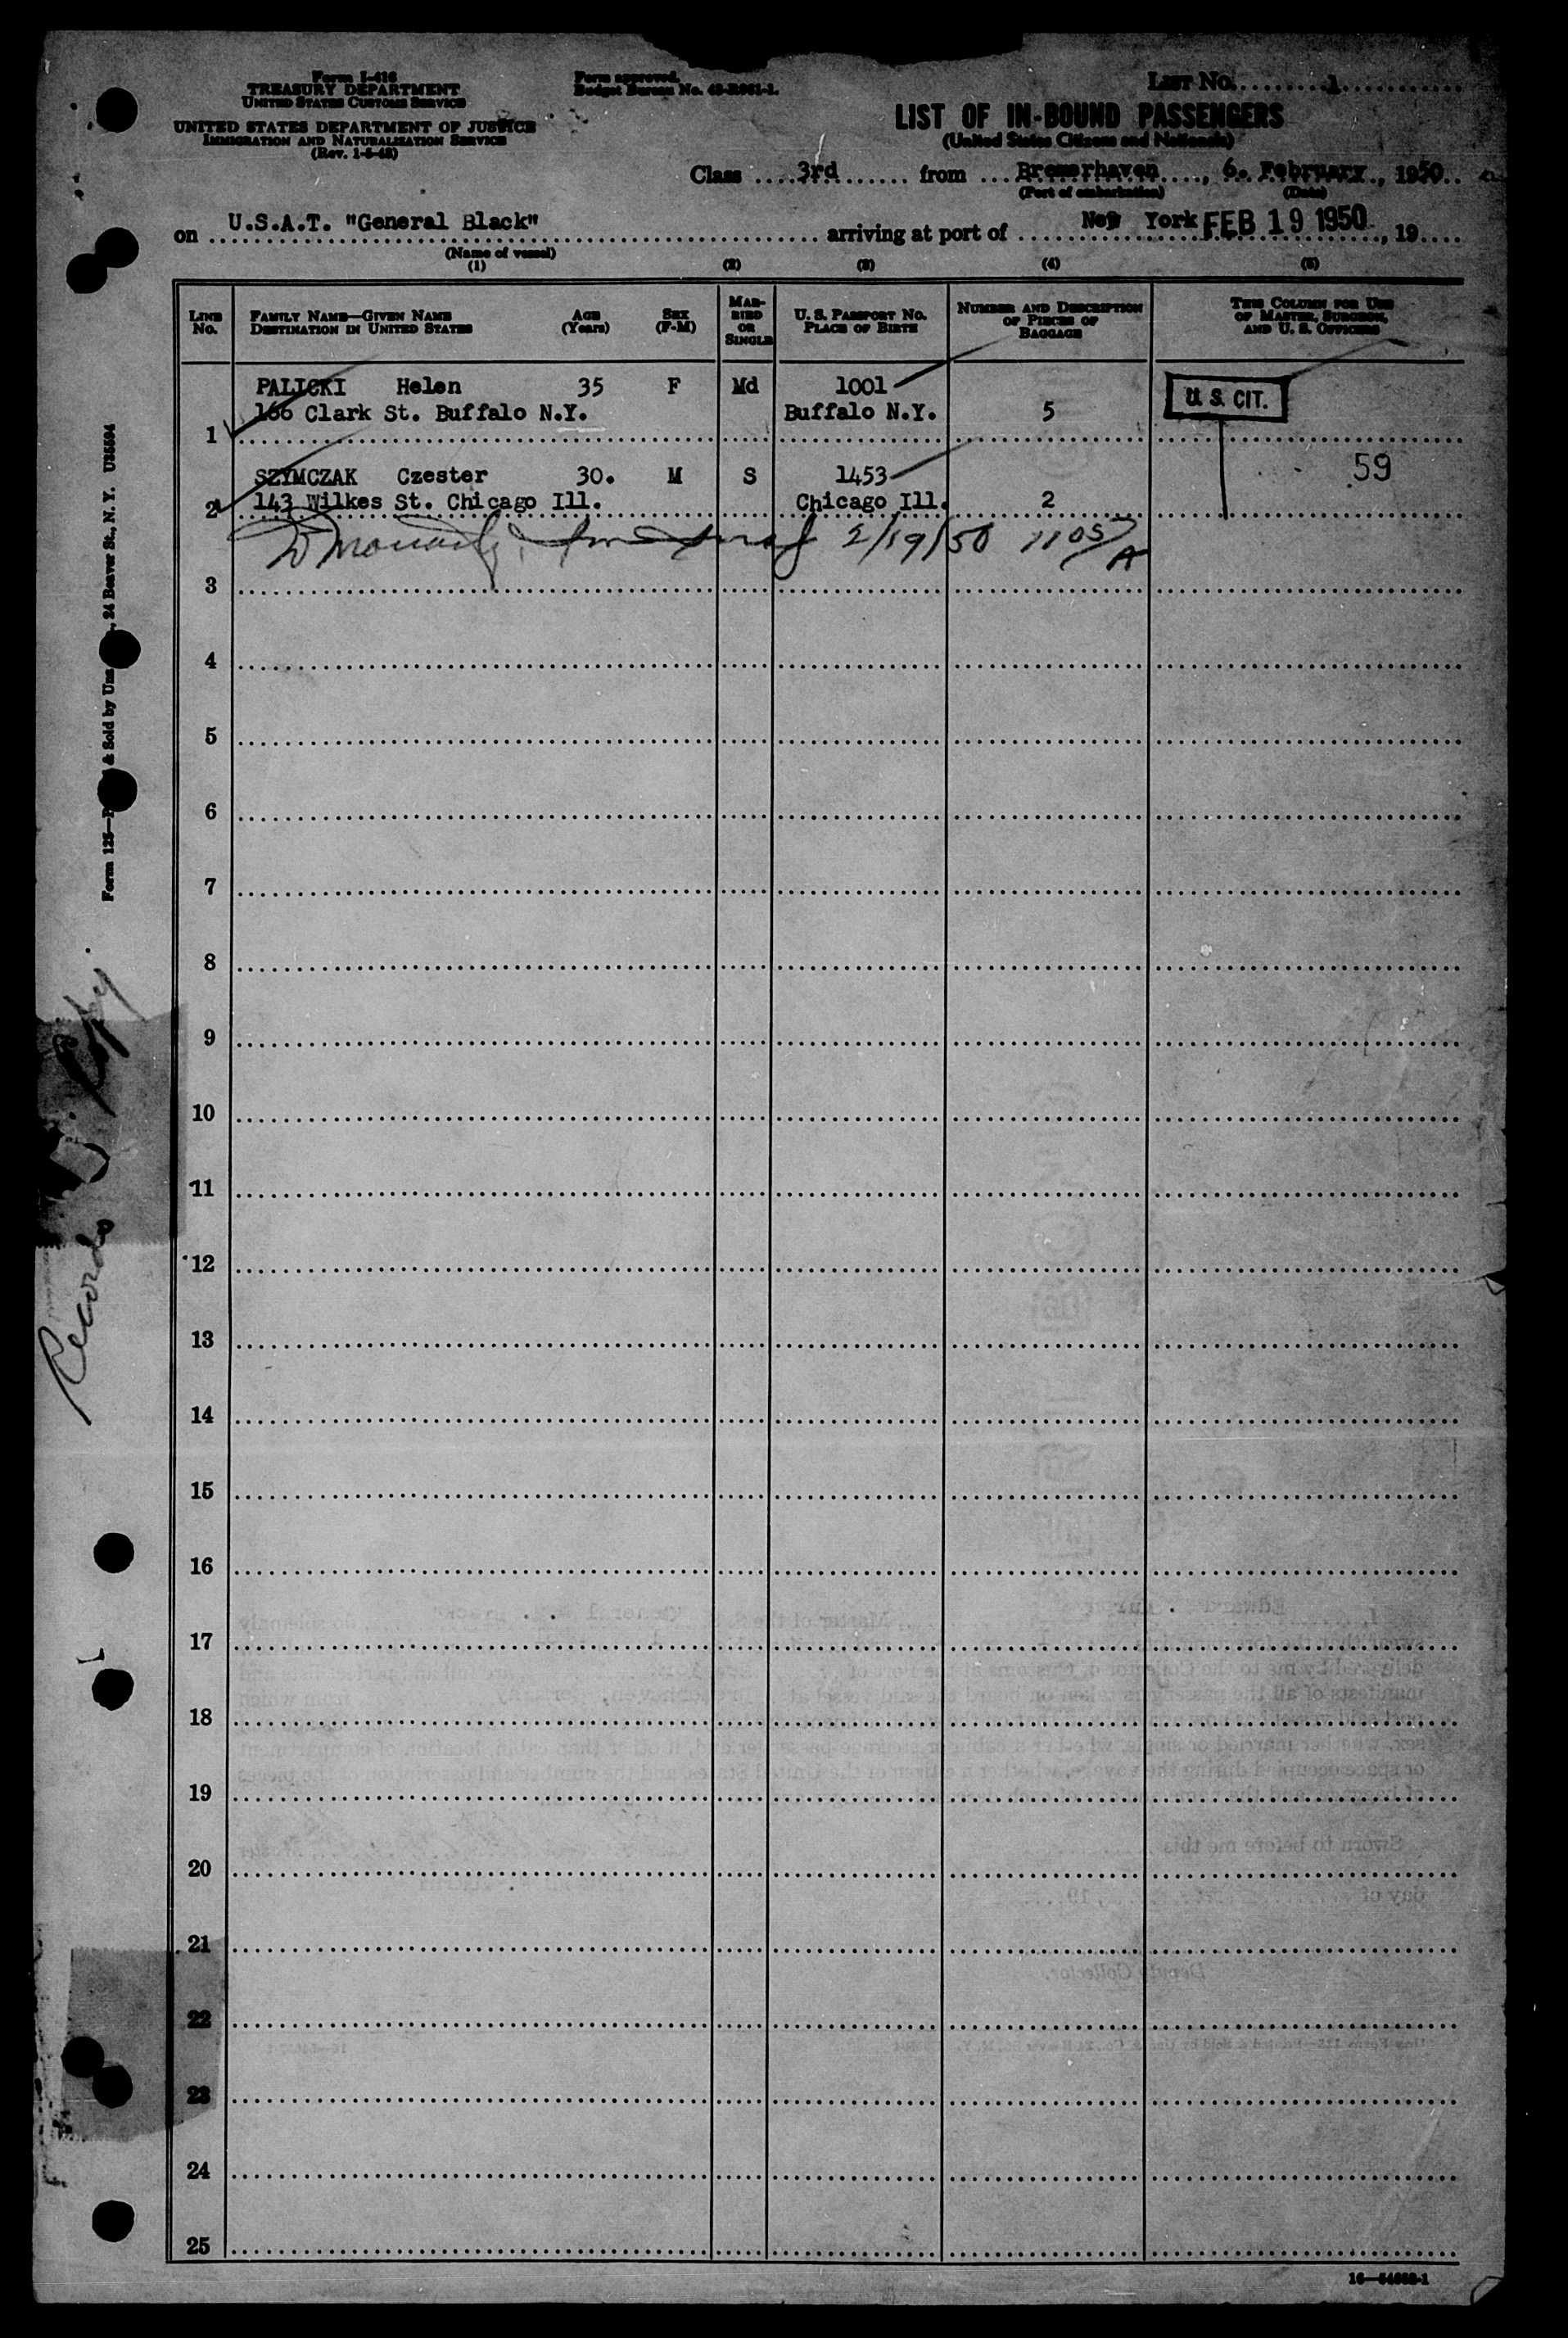 Form I-416
TREASURY DEPARTMENT
UNITED STATES CUSTOMS SERVICE
UNITED STATES DEPARTMENT OF JUSTICE
IMMIGRATION AND NATURALIZATION SERVICE
(Rev. 1-5-48)
Form approved.
Budget Bureau No. 43-R061-1.
LIST NO. 1
LIST OF IN-BOUND PASSENGERS
(United States Citizens and Nationals)
Class 3rd from Bremerhaven, 6. February, 1950
(Port of embarkation) (Date)
on U.S.A.T. "General Black" arriving at port of New York FEB 19 1950, 19
(Name of vessel)
(1) (2) (3) (4) (5)
LINE No.
FAMILY NAME—GIVEN NAME
DESTINATION IN UNITED STATES
AGE (Years)
SEX (F-M)
MARRIED OR SINGLE
U. S. PASSPORT NO.
PLACE OF BIRTH
NUMBER AND DESCRIPTION OF PIECES OF BAGGAGE
THIS COLUMN FOR USE OF MASTER, SURGEON, AND U. S. OFFICERS
PALICKI Helen 35 F Md 1001
U. S. CIT.
1 166 Clark St. Buffalo N.Y. Buffalo N.Y. 5
SZYMCZAK Czester 30. M S 1453 59
2 143 Wilkes St. Chicago Ill. Chicago Ill. 2
2/19/50 1105 A
3
4
5
6
7
8
9
10
11
12
13
14
15
16
17
18
19
20
21
22
23
24
25
Form 125—P & Sold by Unz, 24 Beaver St., N. Y. U35594
Records Copy